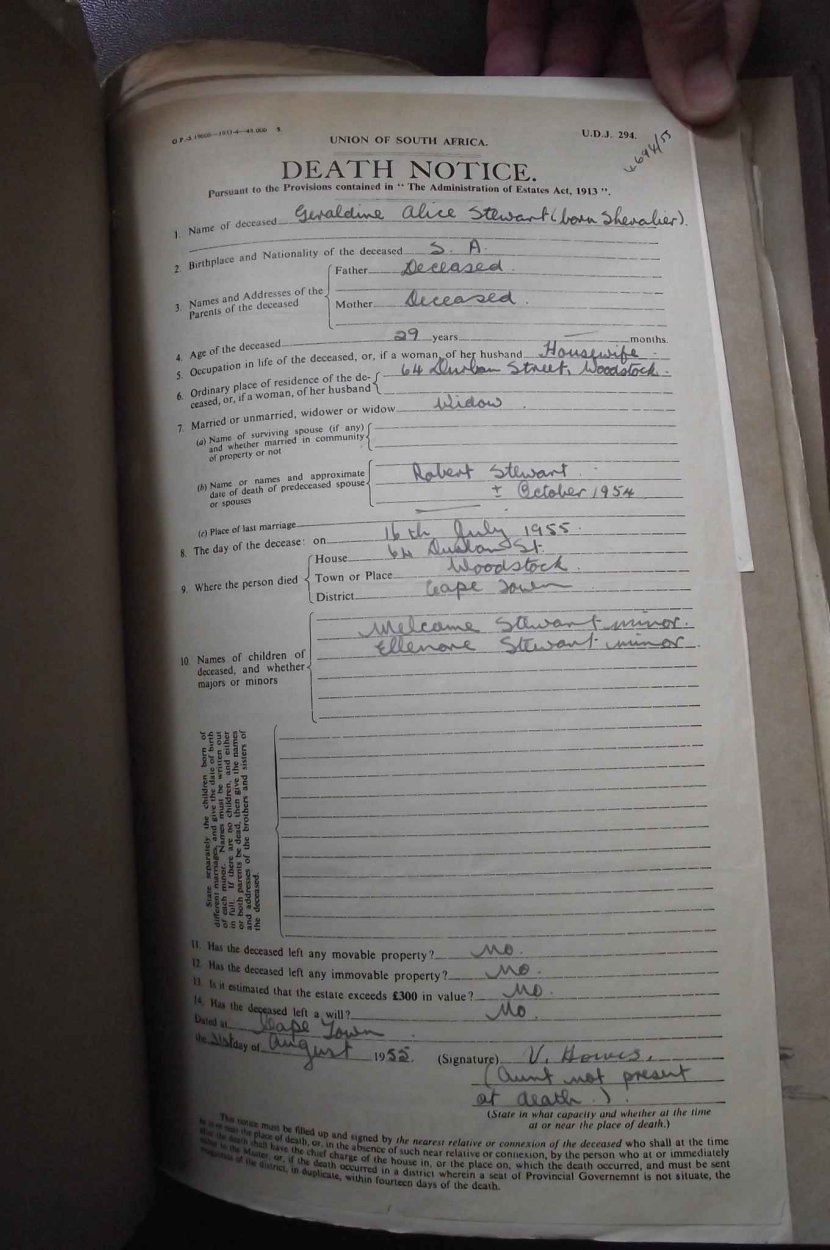 U.D.J. 294.
UNION OF SOUTH AFRICA.
4694/55
DEATH NOTICE.
Pursuant to the Provisions contained in “ The Administration of Estates Act, 1913 ”.
1. Name of deceased Geraldine Alice Stewart (born Shevalier).
2. Birthplace and Nationality of the deceased S. A.
3. Names and Addresses of the Parents of the deceased
Father Deceased
Mother Deceased.
4. Age of the deceased 29 years — months.
5. Occupation in life of the deceased, or, if a woman, of her husband Housewife.
6. Ordinary place of residence of the de-
ceased, or, if a woman, of her husband
64 Durban Street, Woodstock.
7. Married or unmarried, widower or widow Widow
(a) Name of surviving spouse (if any)
and whether married in community
of property or not
(b) Name or names and approximate
date of death of predeceased spouse
or spouses
Robert Stewart
± October 1954
(c) Place of last marriage
8. The day of the decease: on 16th July 1955.
9. Where the person died
House 64 Durban St.
Town or Place Woodstock.
District Cape Town
10. Names of children of
deceased, and whether
majors or minors
Welcome Stewart minor.
Ellenore Stewart minor
State separately the children born of
different marriages, and give the date of birth
of each minor. Names must be written out
in full. If there are no children, and either
or both parents be dead, then give the names
and addresses of the brothers and sisters of
the deceased.
11. Has the deceased left any movable property? No.
12. Has the deceased left any immovable property? No.
13. Is it estimated that the estate exceeds £300 in value? No.
14. Has the deceased left a will? No.
Dated at Cape Town
the 31st day of August 1955. (Signature) V. Howes.
(Aunt not present
at death.)
(State in what capacity and whether at the time
at or near the place of death.)
This notice must be filled up and signed by the nearest relative or connexion of the deceased who shall at the time
or near the place of death, or, in the absence of such near relative or connexion, by the person who at or immediately
after the death shall have the chief charge of the house in, or the place on, which the death occurred, and must be sent
to the Master, or, if the death occurred in a district wherein a seat of Provincial Governemnt is not situate, the
of the district, in duplicate, within fourteen days of the death.